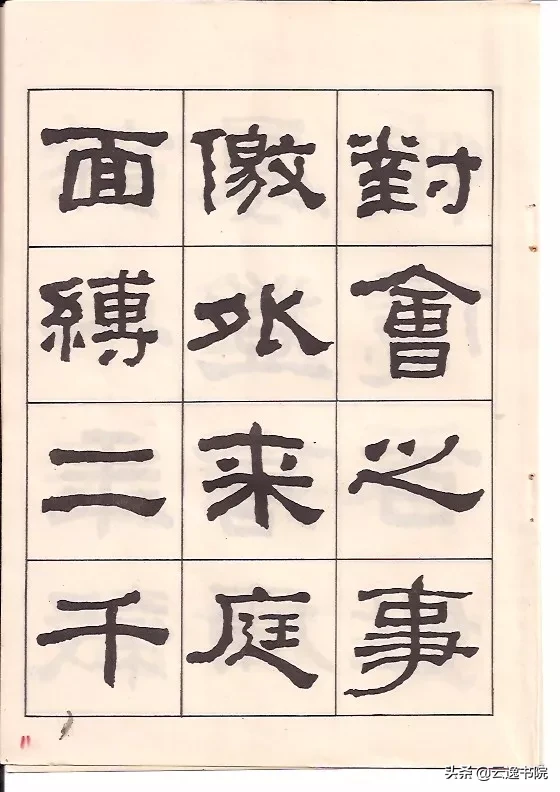 對會之事
儌外来庭
面縛二千
11
头条 @云逸书院